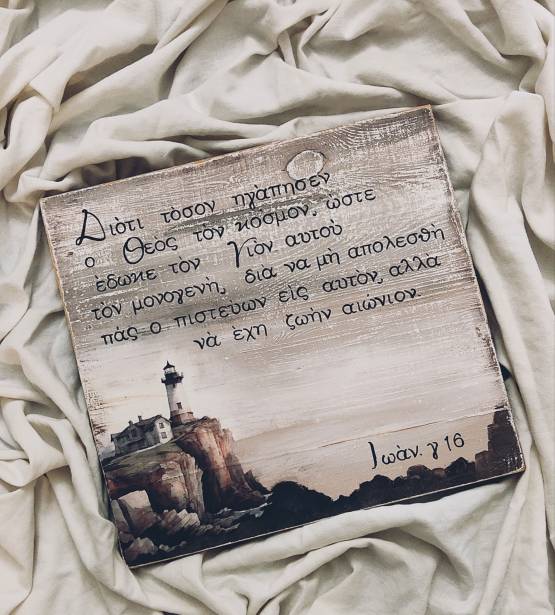 Διότι τόσον ηγάπησεν
ο Θεός τον κόσμον, ώστε
έδωκε τὸν Υἱὸν αυτού
τὸν μονογενή, διὰ να μὴ απολεσθή
πάς ο πιστεύων εἰς αυτόν, αλλὰ
νὰ έχη ζωὴν αιώνιον.
Ιωὰν. γ 16